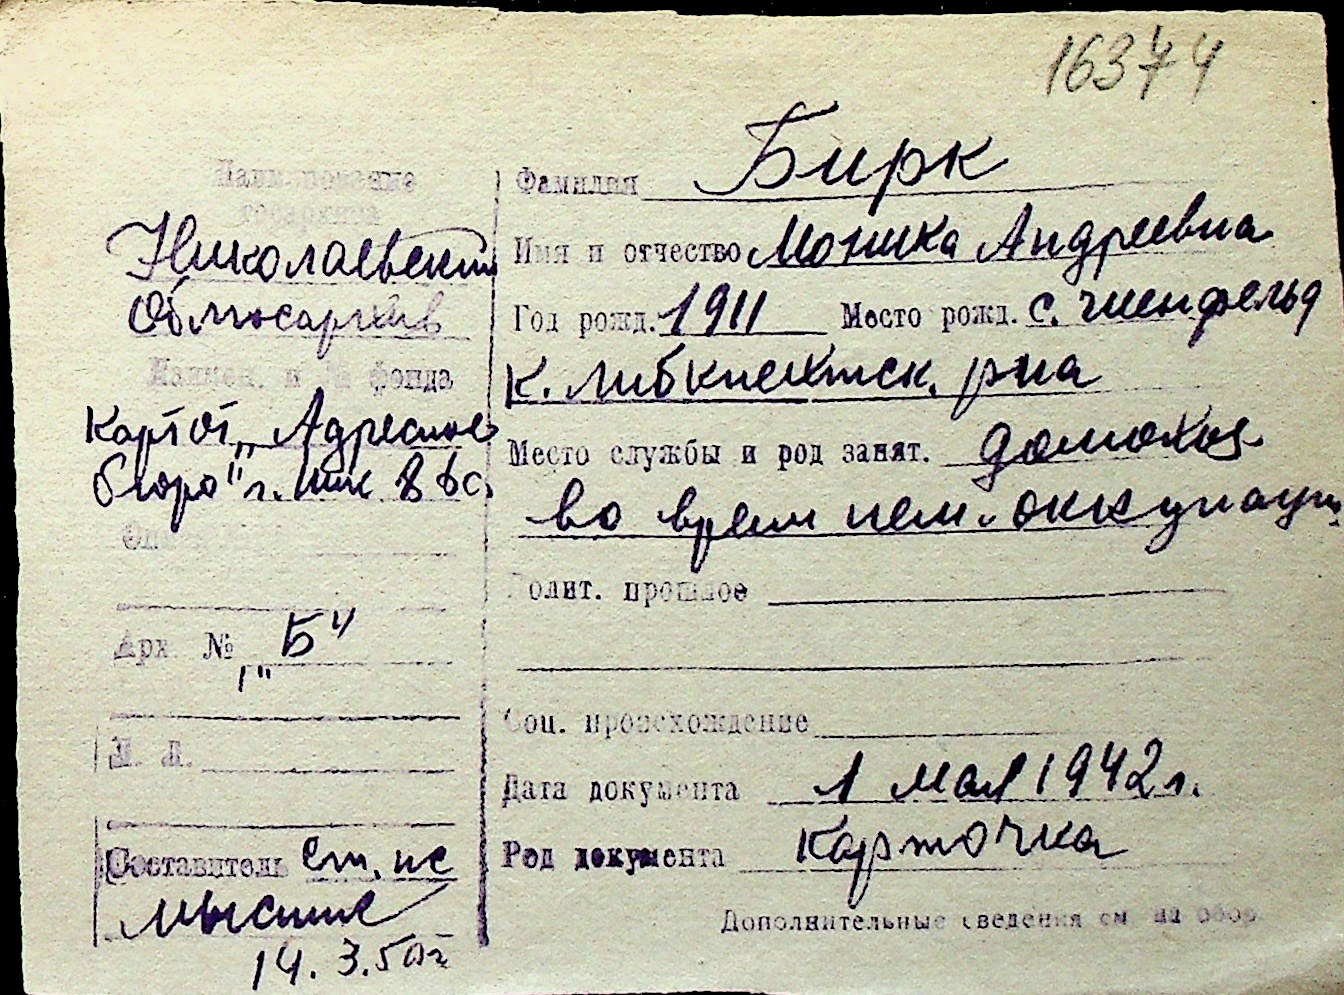 16374
Наименование
госархива
Николаевский
Облгосархив
Наимен. и № фонда
Картот. „Адресное
бюро" г.
Арх. № „Б"
1"
Л. Л.
Составитель ст. нс
14. 3. 50г
Фамилия Бирк
Имя и отчество Моника Андреевна
Год рожд. 1911 Место рожд. с.
К. Либкнехтск. р-на
Место службы и род занят. домохоз
во время нем. оккупации
Полит. прошлое
Соц. происхождение
Дата документа 1 мая 1942 г.
Род документа Карточка
Дополнительные сведения см. на обор.